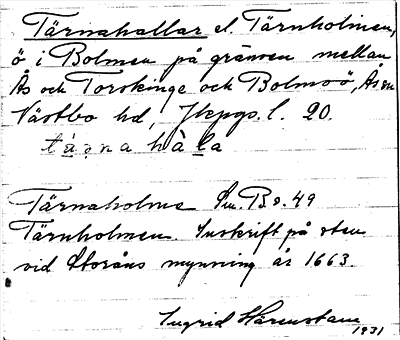 Tärnahallar el. Tärnholmen,
ö i Bolmen på gränsen mellan
Ås och Torskinge och Bolmsö, Ås sn
Västbo hd, Jkpgs. l. 20.
tä̀rna hà̀la
Tärnaholme Sm. B. s. 49
Tärnholmen. Inskrift på sten
vid Storåns mynning år 1663.
Ingrid Härenstam
1931